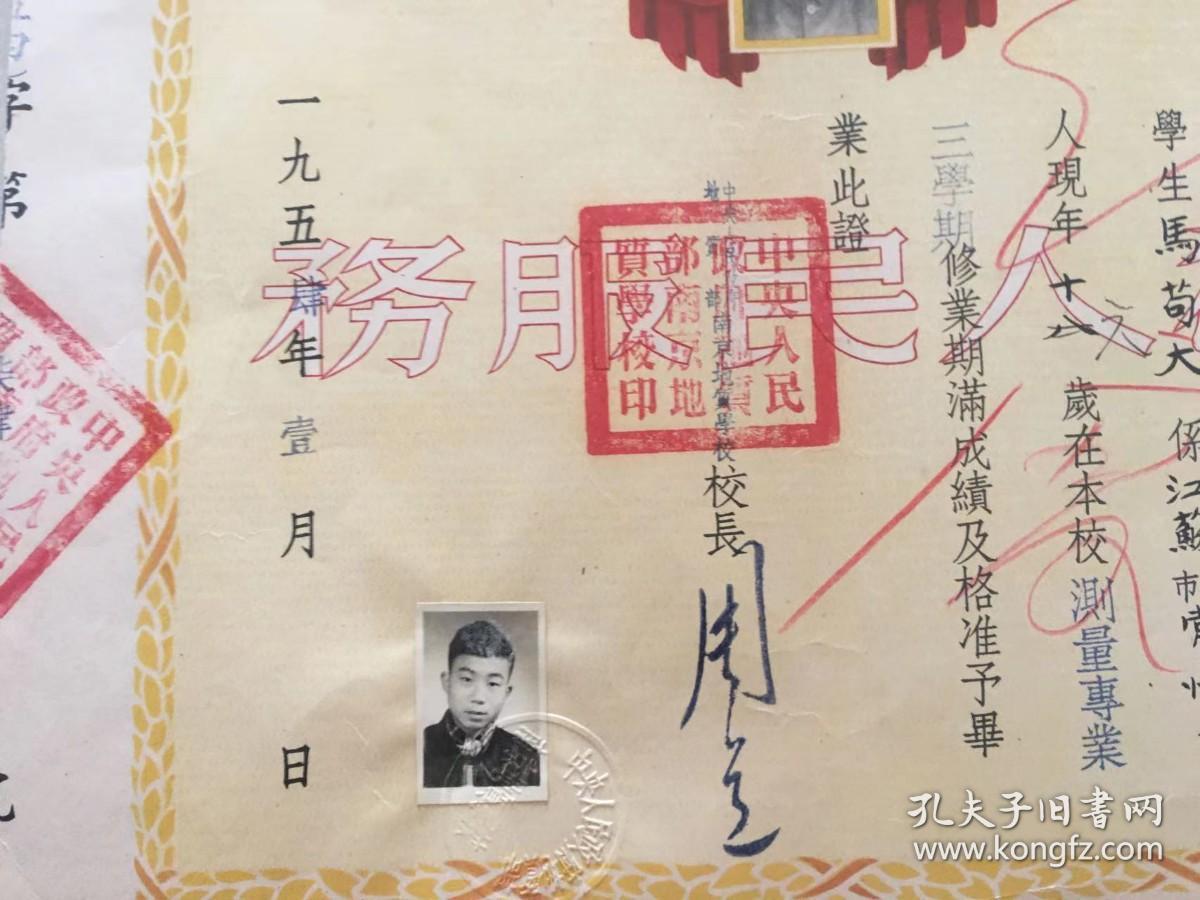 學生馬苟大 係江蘇市常州
人現年十八歲在本校測量專業
三學期修業期滿成績及格准予畢
業此證
中央人民政府
地質部南京地質學校校長
一九五肆年壹月 日
人民服務
中央人民
政府地質
部南京地
質學校印
字第
中央人民
政府
孔夫子旧书网
www.kongfz.com